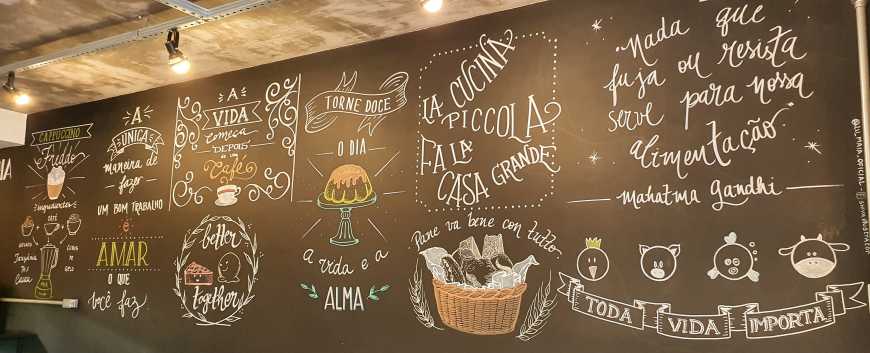 CAPPUCCINO
Freddo
ingredientes
café
A
ÚNICA
maneira de
fazer
UM BOM TRABALHO
é
AMAR
O QUE
você faz
A
VIDA
começa
DEPOIS
DE UM
Café
better
together
TORNE DOCE
O DIA
a vida e a
ALMA
LA CUCINA
PICCOLA
FA LA
CASA GRANDE
Pane va bene con tutto
"Nada que
fuja ou resista
serve para nossa
alimentação"
Mahatma Gandhi
TODA VIDA IMPORTA